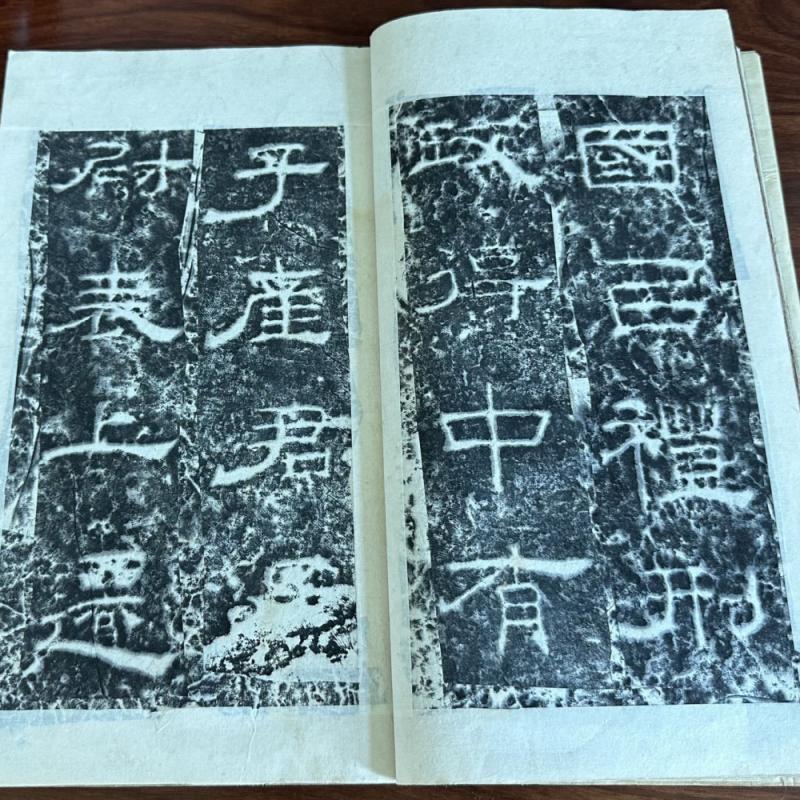 國㠯禮刑
政得中有
子產君子
尉表上遷